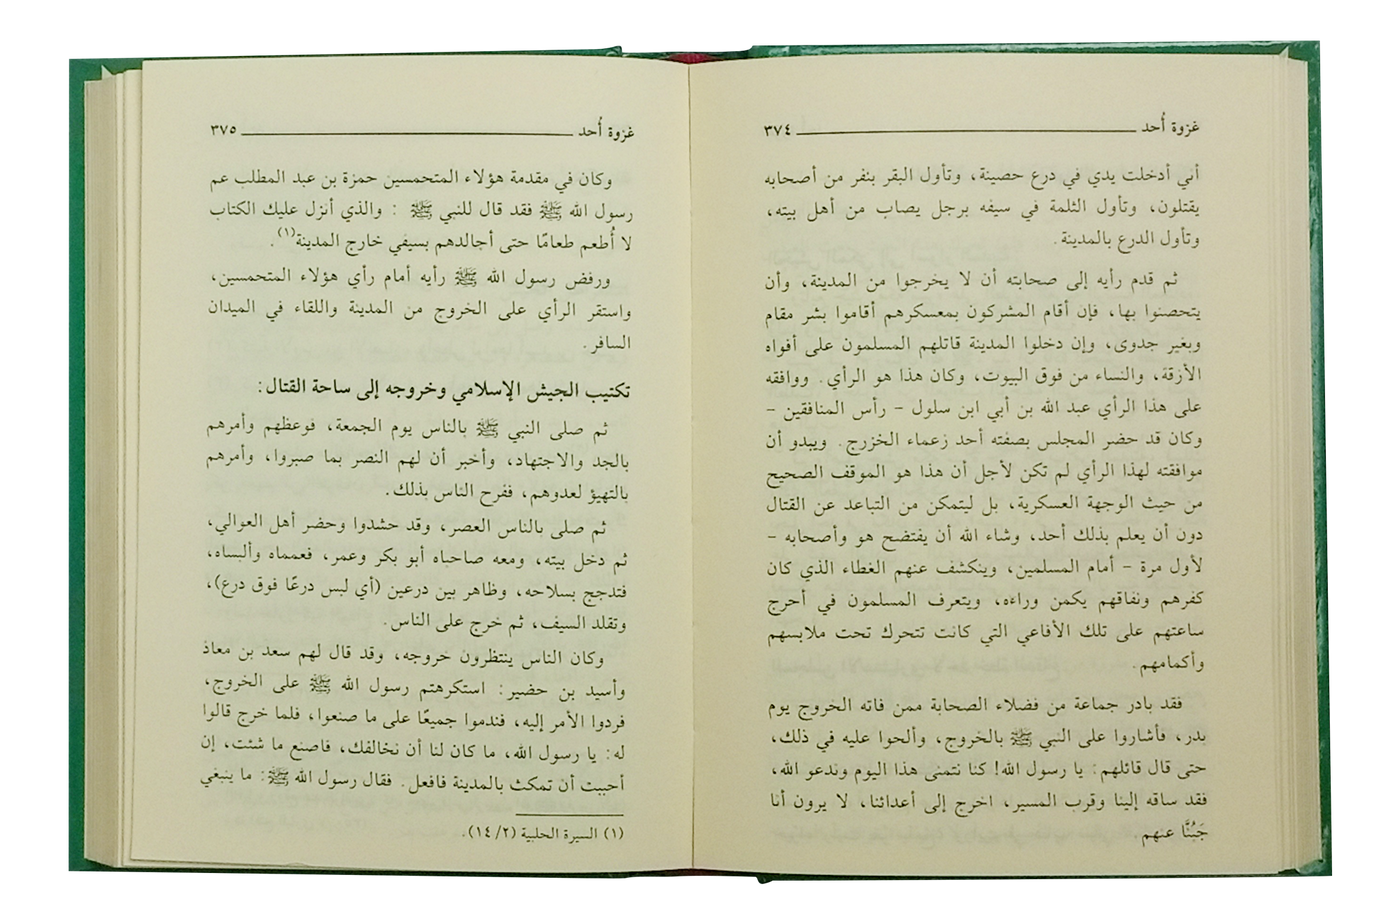 غزوة أُحد ٣٧٤
أني أدخلت يدي في درع حصينة، وتأول البقر بنفر من أصحابه
يقتلون، وتأول الثلمة في سيفه برجل يصاب من أهل بيته،
وتأول الدرع بالمدينة.
ثم قدم رأيه إلى صحابته أن لا يخرجوا من المدينة، وأن
يتحصنوا بها، فإن أقام المشركون بمعسكرهم أقاموا بشر مقام
وبغير جدوى، وإن دخلوا المدينة قاتلهم المسلمون على أفواه
الأزقة، والنساء من فوق البيوت، وكان هذا هو الرأي. ووافقه
على هذا الرأي عبد الله بن أبي ابن سلول – رأس المنافقين –
وكان قد حضر المجلس بصفته أحد زعماء الخزرج. ويبدو أن
موافقته لهذا الرأي لم تكن لأجل أن هذا هو الموقف الصحيح
من حيث الوجهة العسكرية، بل ليتمكن من التباعد عن القتال
دون أن يعلم بذلك أحد، وشاء الله أن يفتضح هو وأصحابه –
لأول مرة – أمام المسلمين، وينكشف عنهم الغطاء الذي كان
كفرهم ونفاقهم يكمن وراءه، ويتعرف المسلمون في أحرج
ساعتهم على تلك الأفاعي التي كانت تتحرك تحت ملابسهم
وأكمامهم.
فقد بادر جماعة من فضلاء الصحابة ممن فاته الخروج يوم
بدر، فأشاروا على النبي ﷺ بالخروج، وألحوا عليه في ذلك،
حتى قال قائلهم: يا رسول الله! كنا نتمنى هذا اليوم وندعو الله،
فقد ساقه إلينا وقرب المسير، اخرج إلى أعدائنا، لا يرون أنا
جَبُنَّا عنهم.
غزوة أُحد ٣٧٥
وكان في مقدمة هؤلاء المتحمسين حمزة بن عبد المطلب عم
رسول الله ﷺ فقد قال للنبي ﷺ : والذي أنزل عليك الكتاب
لا أُطعم طعامًا حتى أجالدهم بسيفي خارج المدينة(١).
ورفض رسول الله ﷺ رأيه أمام رأي هؤلاء المتحمسين،
واستقر الرأي على الخروج من المدينة واللقاء في الميدان
السافر.
تكتيب الجيش الإسلامي وخروجه إلى ساحة القتال:
ثم صلى النبي ﷺ بالناس يوم الجمعة، فوعظهم وأمرهم
بالجد والاجتهاد، وأخبر أن لهم النصر بما صبروا، وأمرهم
بالتهيؤ لعدوهم، ففرح الناس بذلك.
ثم صلى بالناس العصر، وقد حشدوا وحضر أهل العوالي،
ثم دخل بيته، ومعه صاحباه أبو بكر وعمر، فعمماه وألبساه،
فتدجج بسلاحه، وظاهر بين درعين (أي لبس درعًا فوق درع)،
وتقلد السيف، ثم خرج على الناس.
وكان الناس ينتظرون خروجه، وقد قال لهم سعد بن معاذ
وأسيد بن حضير: استكرهتم رسول الله ﷺ على الخروج،
فردوا الأمر إليه، فندموا جميعًا على ما صنعوا، فلما خرج قالوا
له: يا رسول الله، ما كان لنا أن نخالفك، فاصنع ما شئت، إن
أحببت أن تمكث بالمدينة فافعل. فقال رسول الله ﷺ: ما ينبغي
(١) السيرة الحلبية (٢/ ١٤).